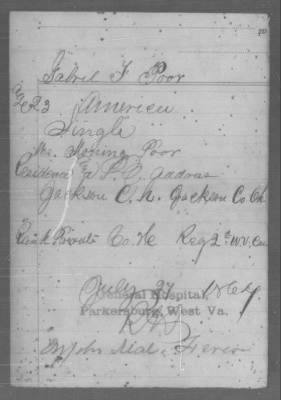 Gabriel F Poor
Æ 23 America
Single
Mr. Poor
Residence & P.O. address
Jackson C.H. Jackson Co. Oh
Rank Private Co. He Reg 2d W.V. Cav
July 27 1864
General Hospital,
Parkersburg, West Va.
Typho Mal. Fever